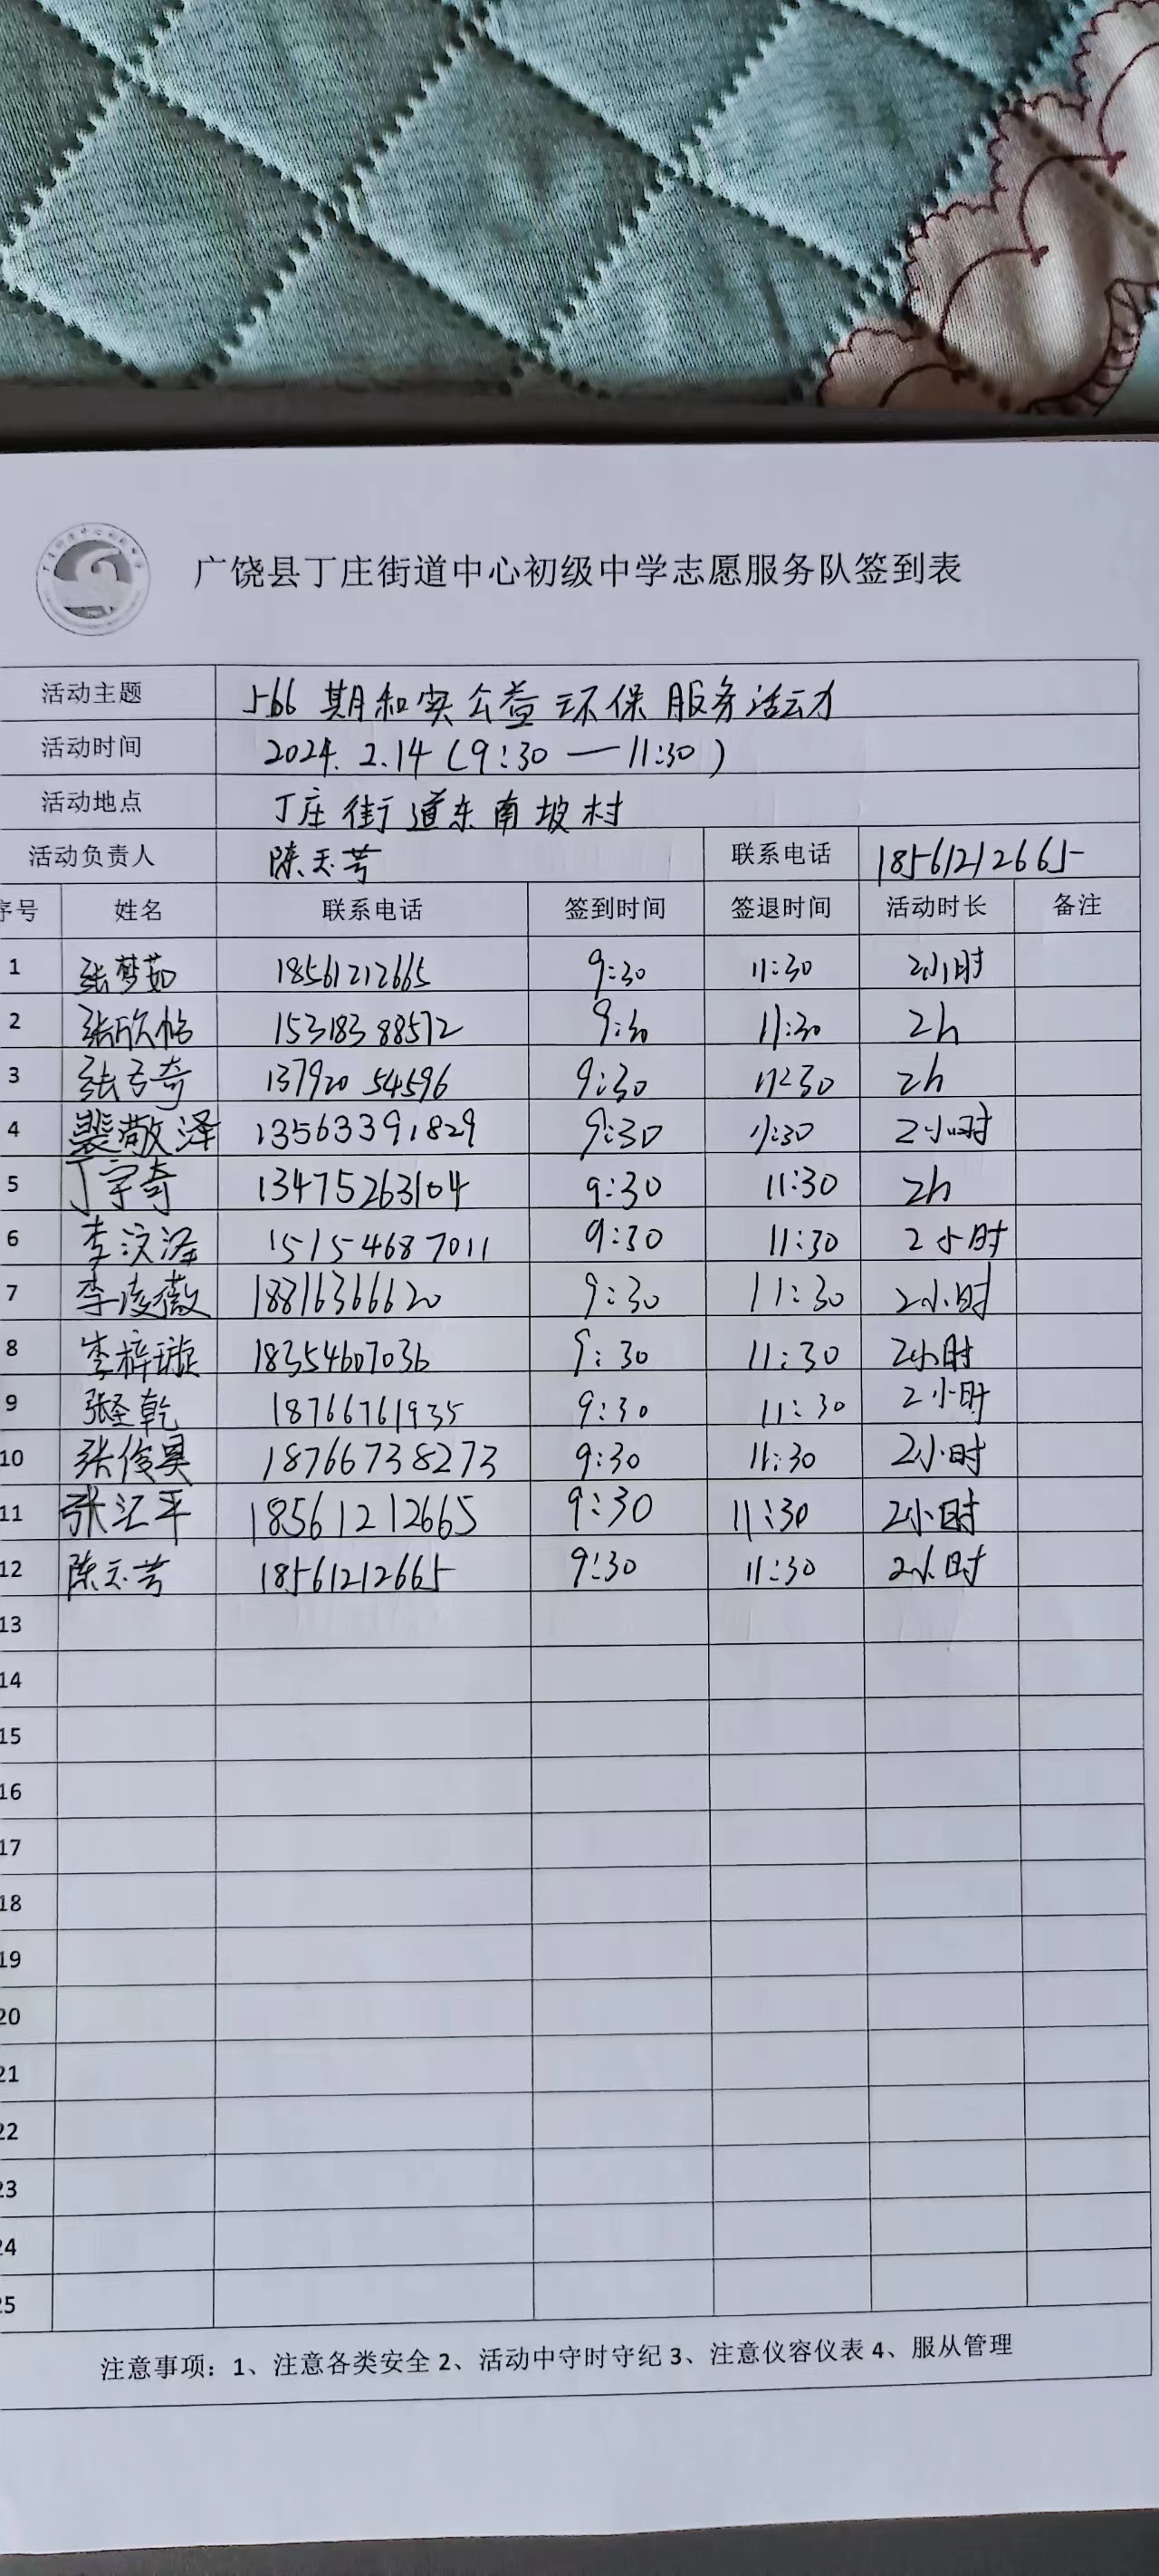 广饶县丁庄街道中心初级中学志愿服务队签到表
活动主题 566期和实公益环保服务活动
活动时间 2024.2.14(9:30—11:30)
活动地点 丁庄街道东南坡村
活动负责人 陈玉芳 联系电话 18561212665
序号 姓名 联系电话 签到时间 签退时间 活动时长 备注
1 张梦茹 18561212665 9:30 11:30 2小时
2 张欣怡 15318388572 9:30 11:30 2h
3 137920 54596 9:30 11:30 2h
4 裴敬泽 13563391829 9:30 11:30 2小时
5 丁宇奇 13475263104 9:30 11:30 2h
6 李汶泽 15154687011 9:30 11:30 2小时
7 李凌薇 18816366620 9:30 11:30 2小时
8 李梓璇 18354607036 9:30 11:30 2小时
9 张圣乾 18766761935 9:30 11:30 2小时
10 张俊昊 18766738273 9:30 11:30 2小时
11 张汇平 18561212665 9:30 11:30 2小时
12 陈玉芳 18561212665 9:30 11:30 2小时
13
14
15
16
17
18
19
20
21
22
23
24
25
注意事项：1、注意各类安全 2、活动中守时守纪 3、注意仪容仪表 4、服从管理